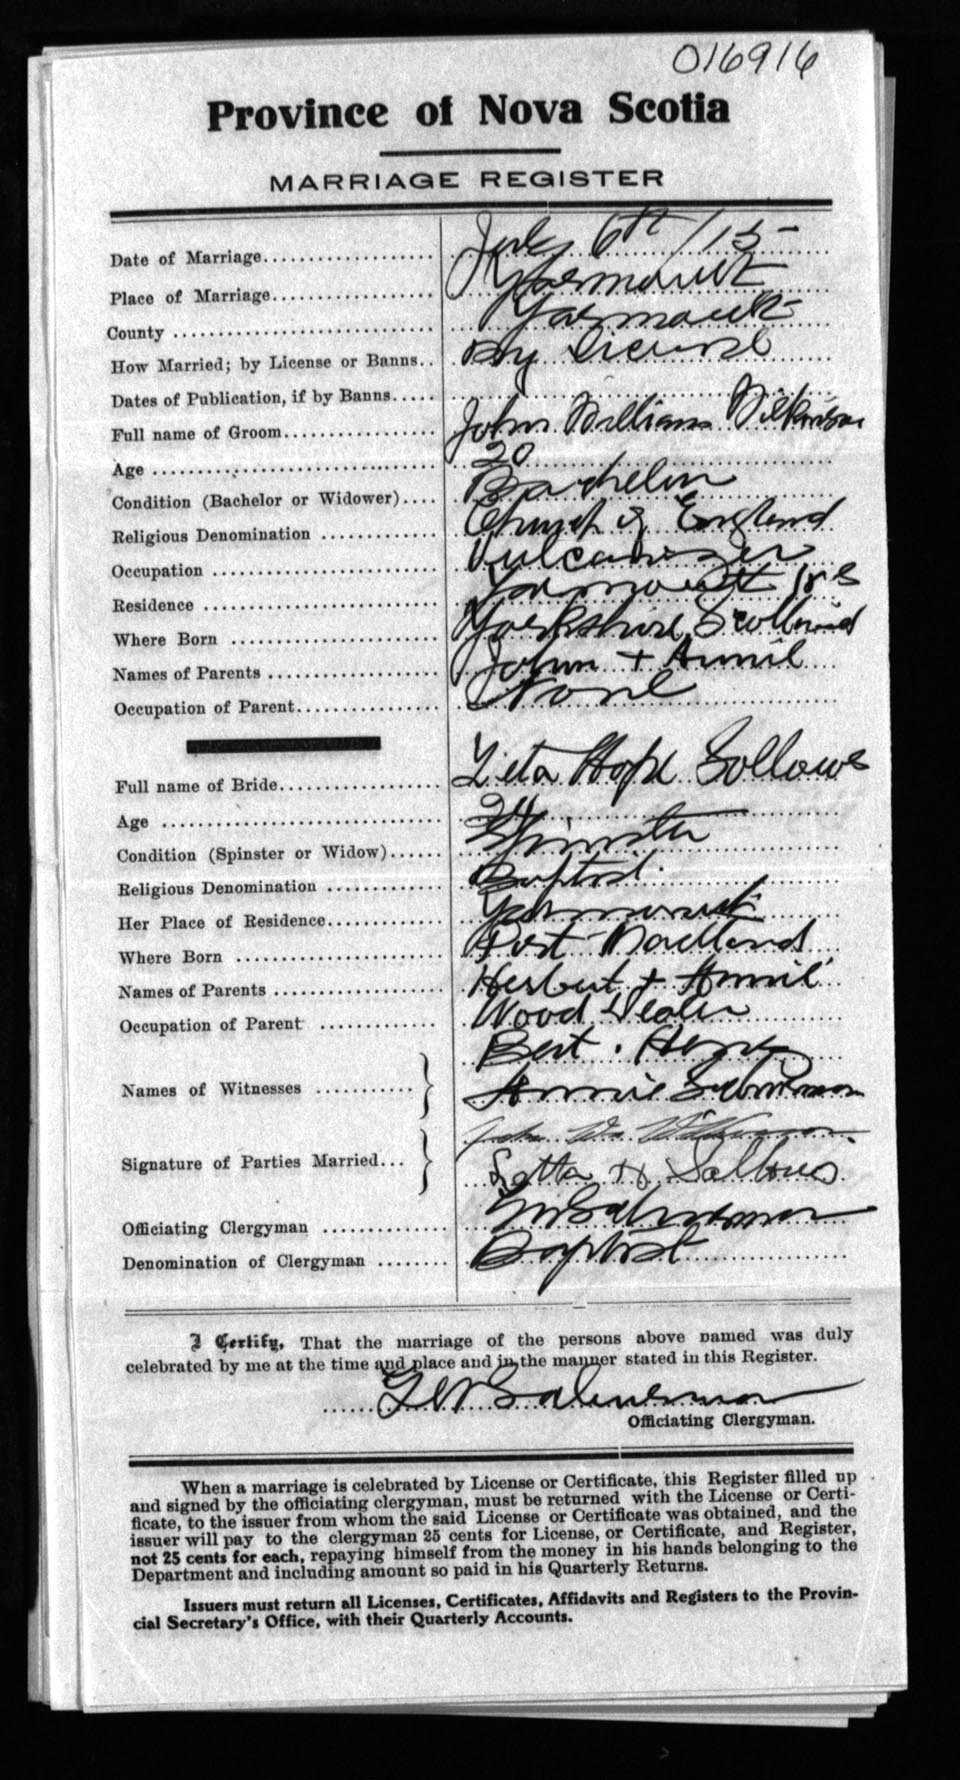 016916
Province of Nova Scotia
MARRIAGE REGISTER
Date of Marriage July 6th /15
Place of Marriage Yarmouth
County Yarmouth
How Married; by License or Banns By License
Dates of Publication, if by Banns
Full name of Groom John William Wilkinson
Age 20
Condition (Bachelor or Widower) Bachelor
Religious Denomination Church of England
Occupation Vulcanizer
Residence Yarmouth N S
Where Born Yorkshire Scotland
Names of Parents John + Annie
Occupation of Parent None
Full name of Bride Hope Sollows
Age 24
Condition (Spinster or Widow) Spinster
Religious Denomination Baptist
Her Place of Residence Yarmouth
Where Born Port Maitland
Names of Parents Herbert + Annie
Occupation of Parent Wood Dealer
Bert
Names of Witnesses Annie
Signature of Parties Married John Wm Wilkinson
H Sollows
Officiating Clergyman
Denomination of Clergyman Baptist
I Certify, That the marriage of the persons above named was duly
celebrated by me at the time and place and in the manner stated in this Register.
Officiating Clergyman.
When a marriage is celebrated by License or Certificate, this Register filled up
and signed by the officiating clergyman, must be returned with the License or Certi-
ficate, to the issuer from whom the said License or Certificate was obtained, and the
issuer will pay to the clergyman 25 cents for License, or Certificate, and Register,
not 25 cents for each, repaying himself from the money in his hands belonging to the
Department and including amount so paid in his Quarterly Returns.
Issuers must return all Licenses, Certificates, Affidavits and Registers to the Provin-
cial Secretary's Office, with their Quarterly Accounts.